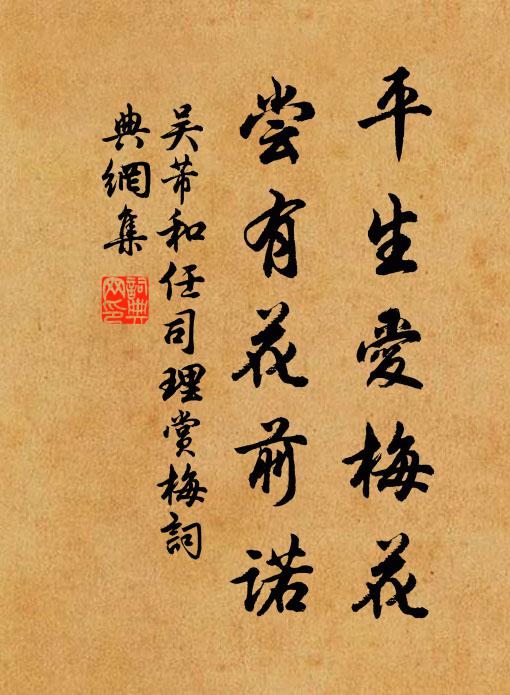 平生愛梅花
尝有花前诺
吴芾和任司理赏梅詞
典網集
詞典
网印